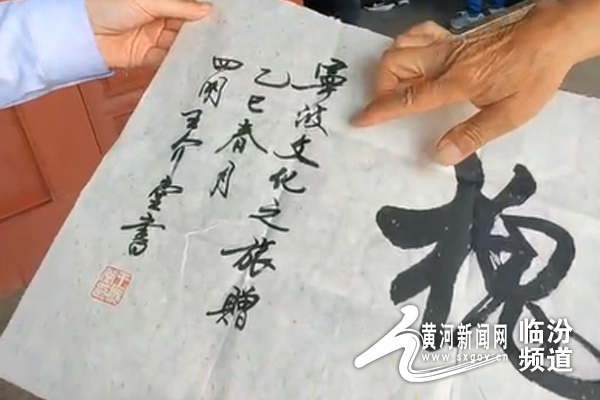 槐
寧波文化之旅贈
乙巳春月
四明王介堂書
黄河新闻网
www.sxgov.cn
临汾
频道